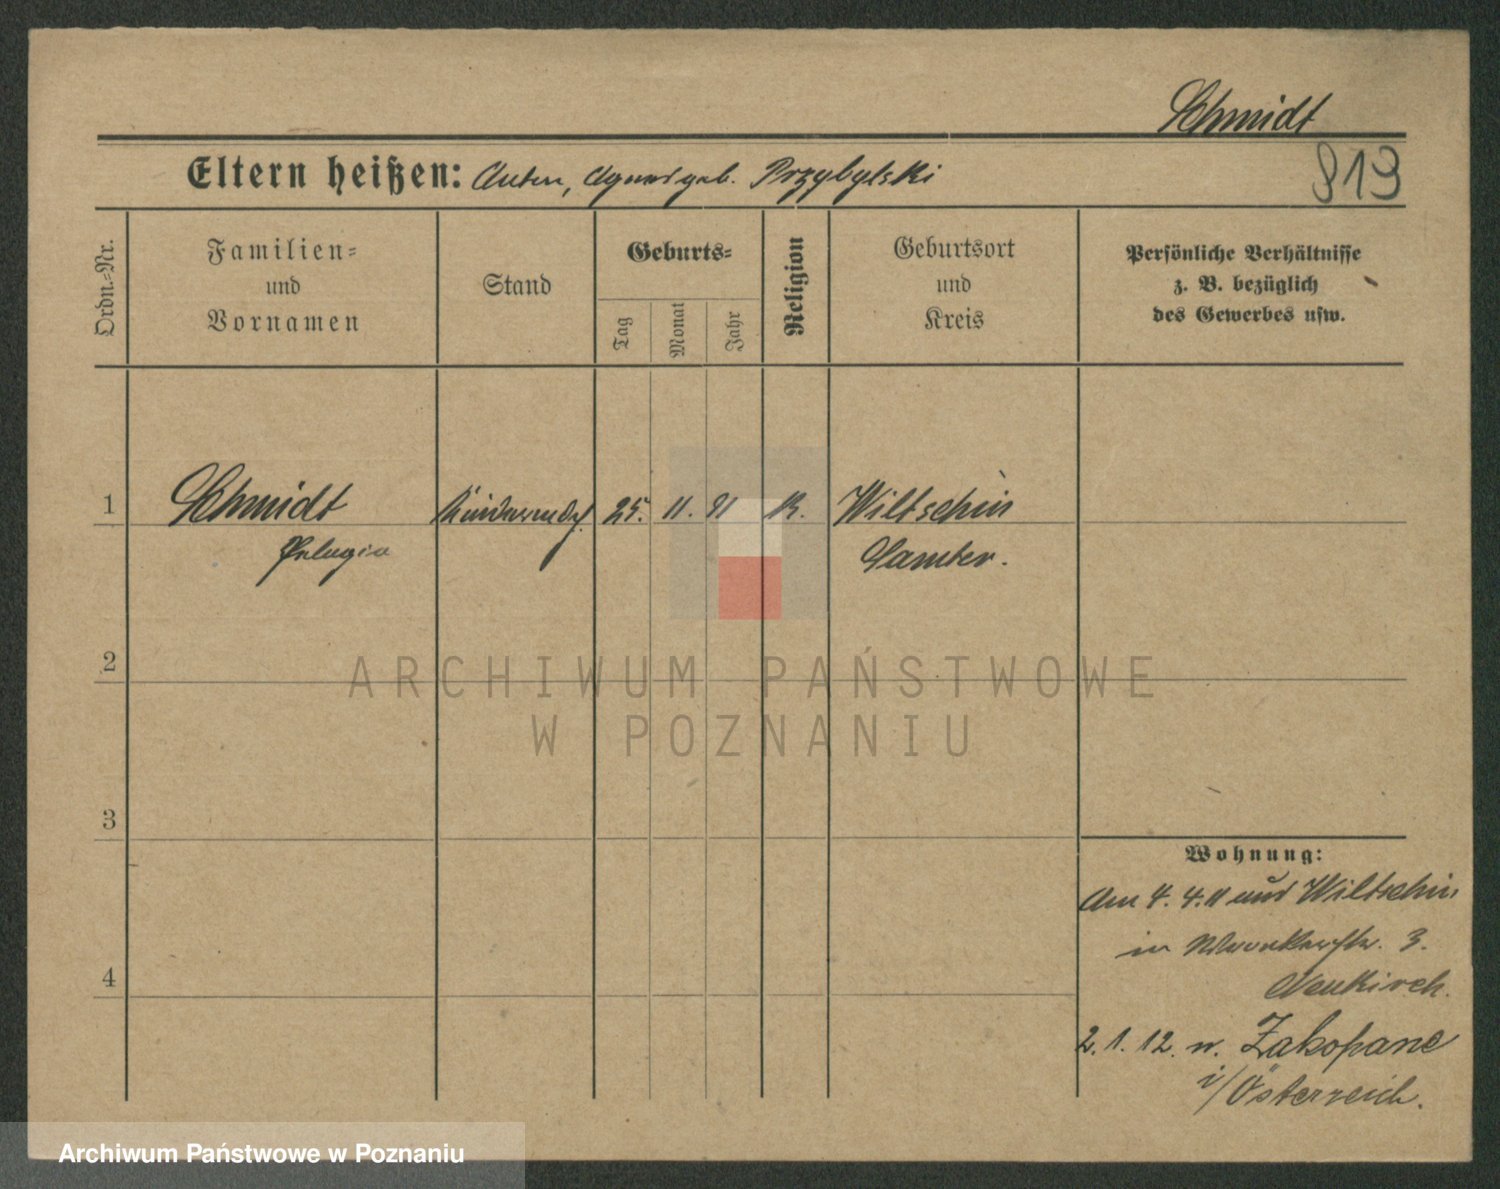 Schmidt
Eltern heißen: Anton, Agnes geb. Przybylski
913
Ordn.-Nr.
Familien-
und
Vornamen
Stand
Geburts-
Tag
Monat
Jahr
Religion
Geburtsort
und
Kreis
Persönliche Verhältnisse
z. B. bezüglich
des Gewerbes usw.
1
Schmidt
Pelagia
Kindermdch.
25. 11. 91
K.
Wiltschin
Samter.
2
3
4
Wohnung:
Am 4. 4. 11 aus Wiltschin
in Wronkerstr. 3.
Neukirch.
2. 1. 12. n. Zakopane
i/Österreich.
ARCHIWUM PAŃSTWOWE
W POZNANIU
Archiwum Państwowe w Poznaniu